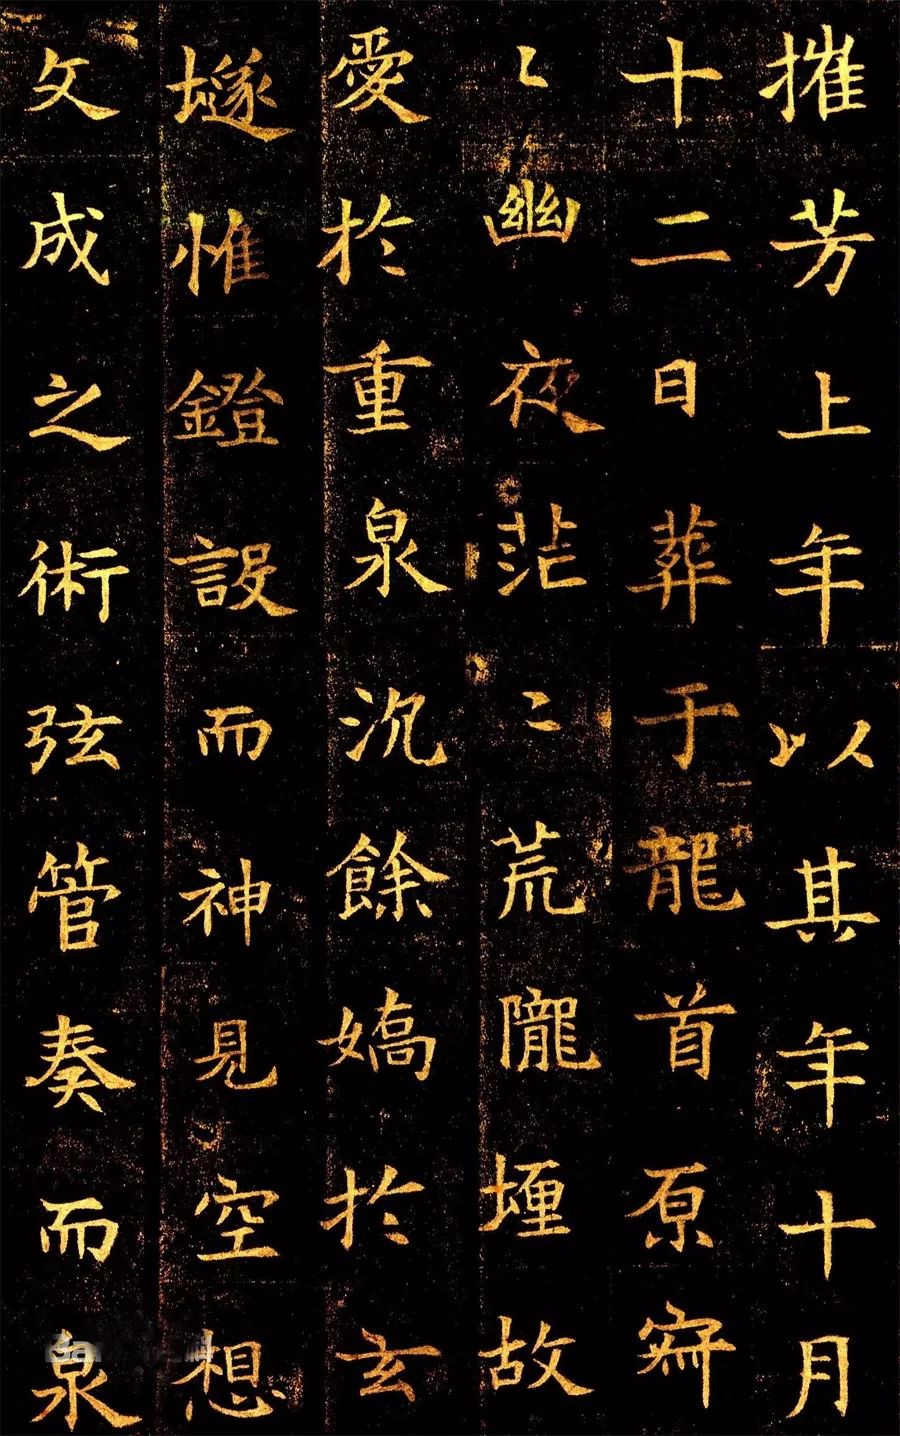 摧芳上年以其年十月
十二日葬于龍首原寂
〻幽夜茫〻荒隴埋故
愛於重泉沉餘嬌於玄
隧惟鐙設而神見空想
文成之術弦管奏而泉